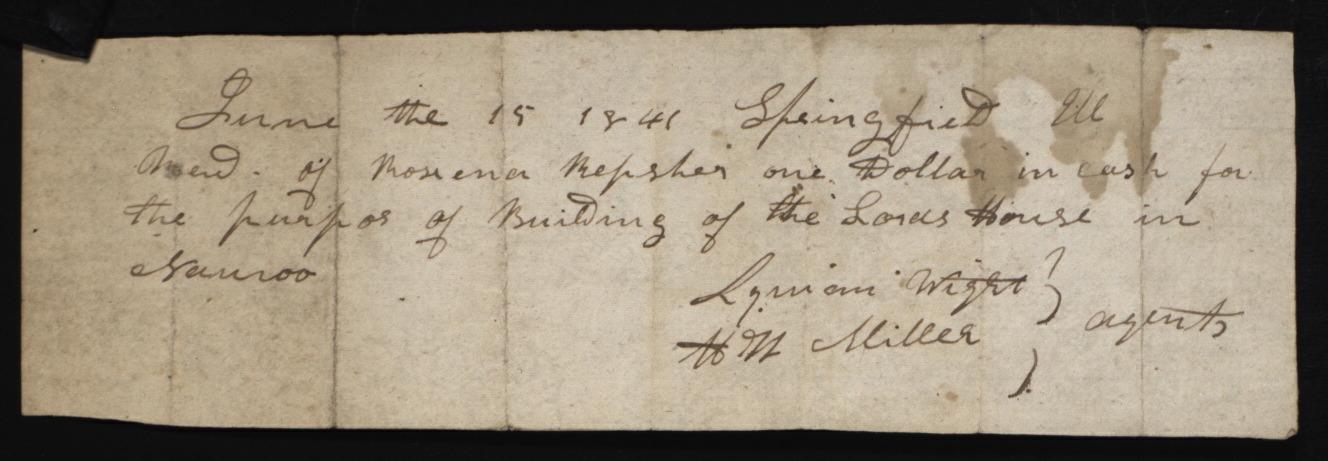 June the 15 1841 Springfield Ill
Recd. of Roxena Repsher one Dollar in cash for
the purpos of Building of the Lords House in
Nauvoo
Lyman Wight } agents
H W Miller }